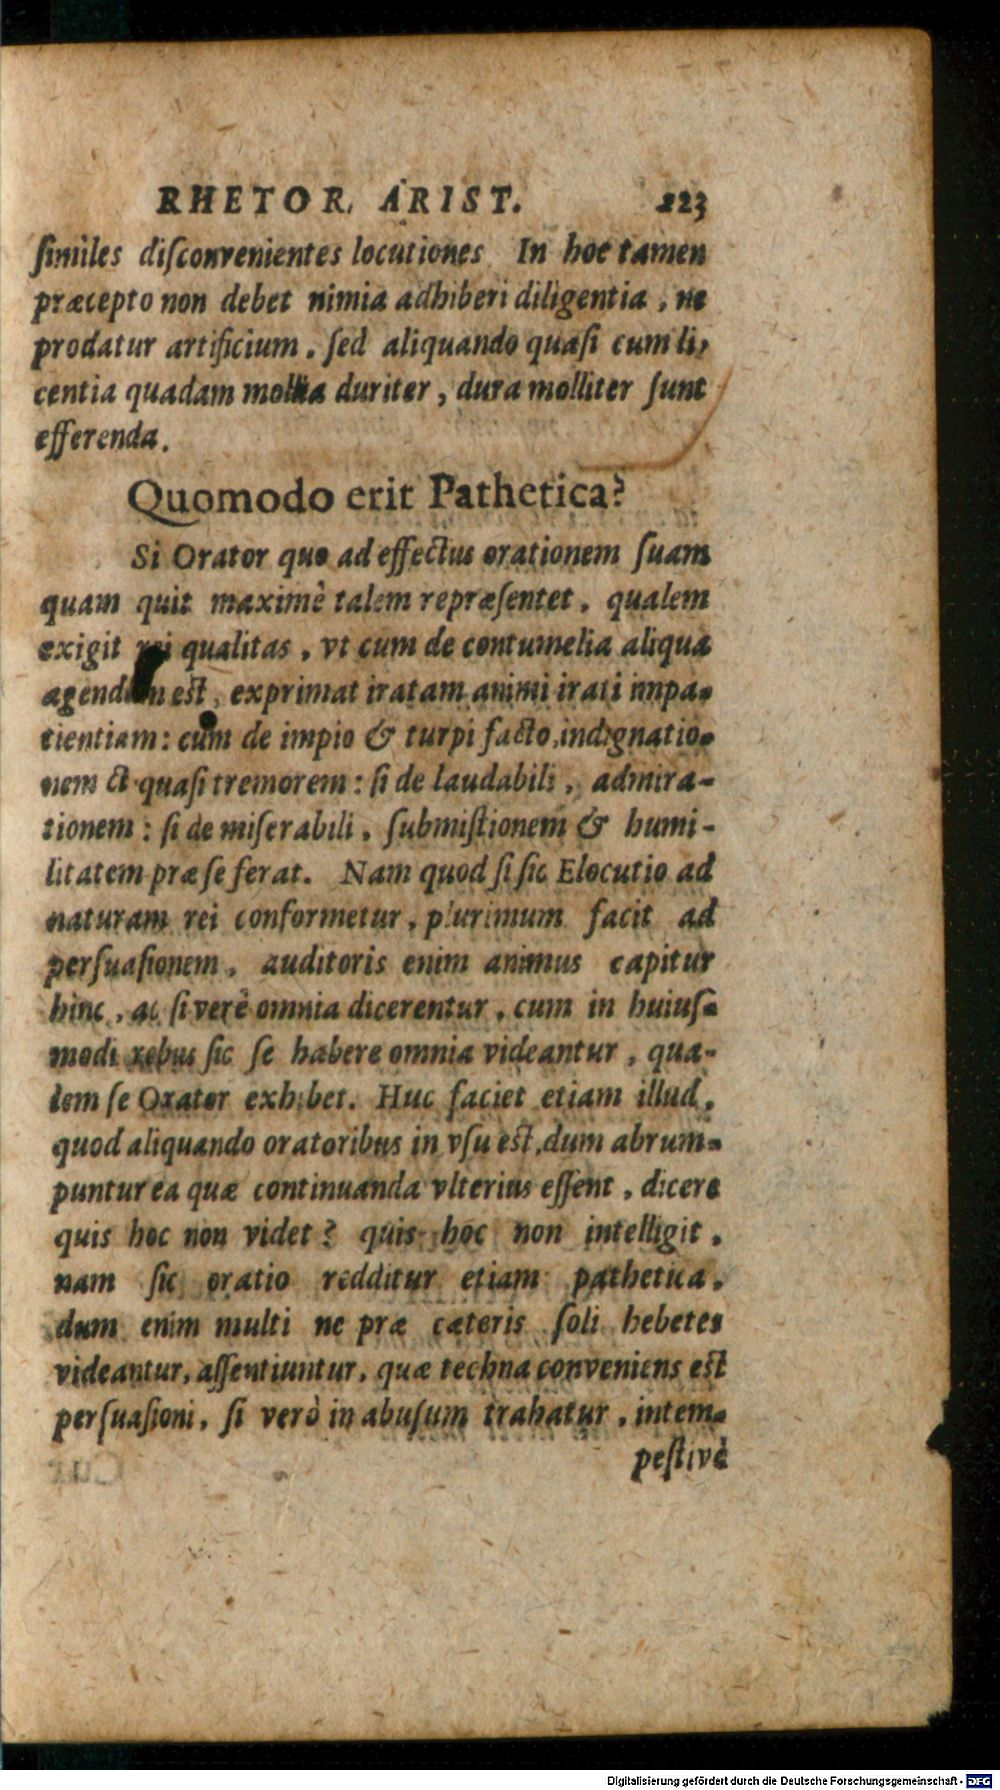 RHETOR. ARIST. 223
ſimiles diſconvenientes locutiones In hoc tamen
præcepto non debet nimia adhiberi diligentia, ne
prodatur artificium. ſed aliquando quaſi cum li-
centia quadam mollia duriter, dura molliter ſunt
efferenda.
Quomodo erit Pathetica?
Si Orator quo ad effectus orationem ſuam
quam quit maximè talem repræſentet, qualem
exigit rei qualitas, vt cum de contumelia aliqua
agendum est, exprimat iratam animi irati impa-
tientiam: cum de impio & turpi facto, indignatio-
nem & quaſi tremorem: ſi de laudabili, admira-
tionem: ſi de miſerabili, ſubmiſtionem & humi-
litatem præ ſe ferat. Nam quod ſi ſic Elocutio ad
naturam rei conformetur, plurimum facit ad
perſuaſionem, auditoris enim animus capitur
hinc, ac ſi verè omnia dicerentur, cum in huiuſ-
modi rebus ſic ſe habere omnia videantur, qua-
lem ſe Orator exhibet. Huc faciet etiam illud,
quod aliquando oratoribus in vſu est, dum abrum-
puntur ea quæ continuanda vlterius eſſent, dicere
quis hoc non videt? quis hoc non intelligit,
nam ſic oratio redditur etiam pathetica,
dum enim multi ne præ cæteris ſoli hebetes
videantur, aſſentiuntur, quæ techna conveniens est
perſuaſioni, ſi verò in abuſum trahatur, intem-
peſtivè
Digitalisierung gefördert durch die Deutsche Forschungsgemeinschaft - DFG